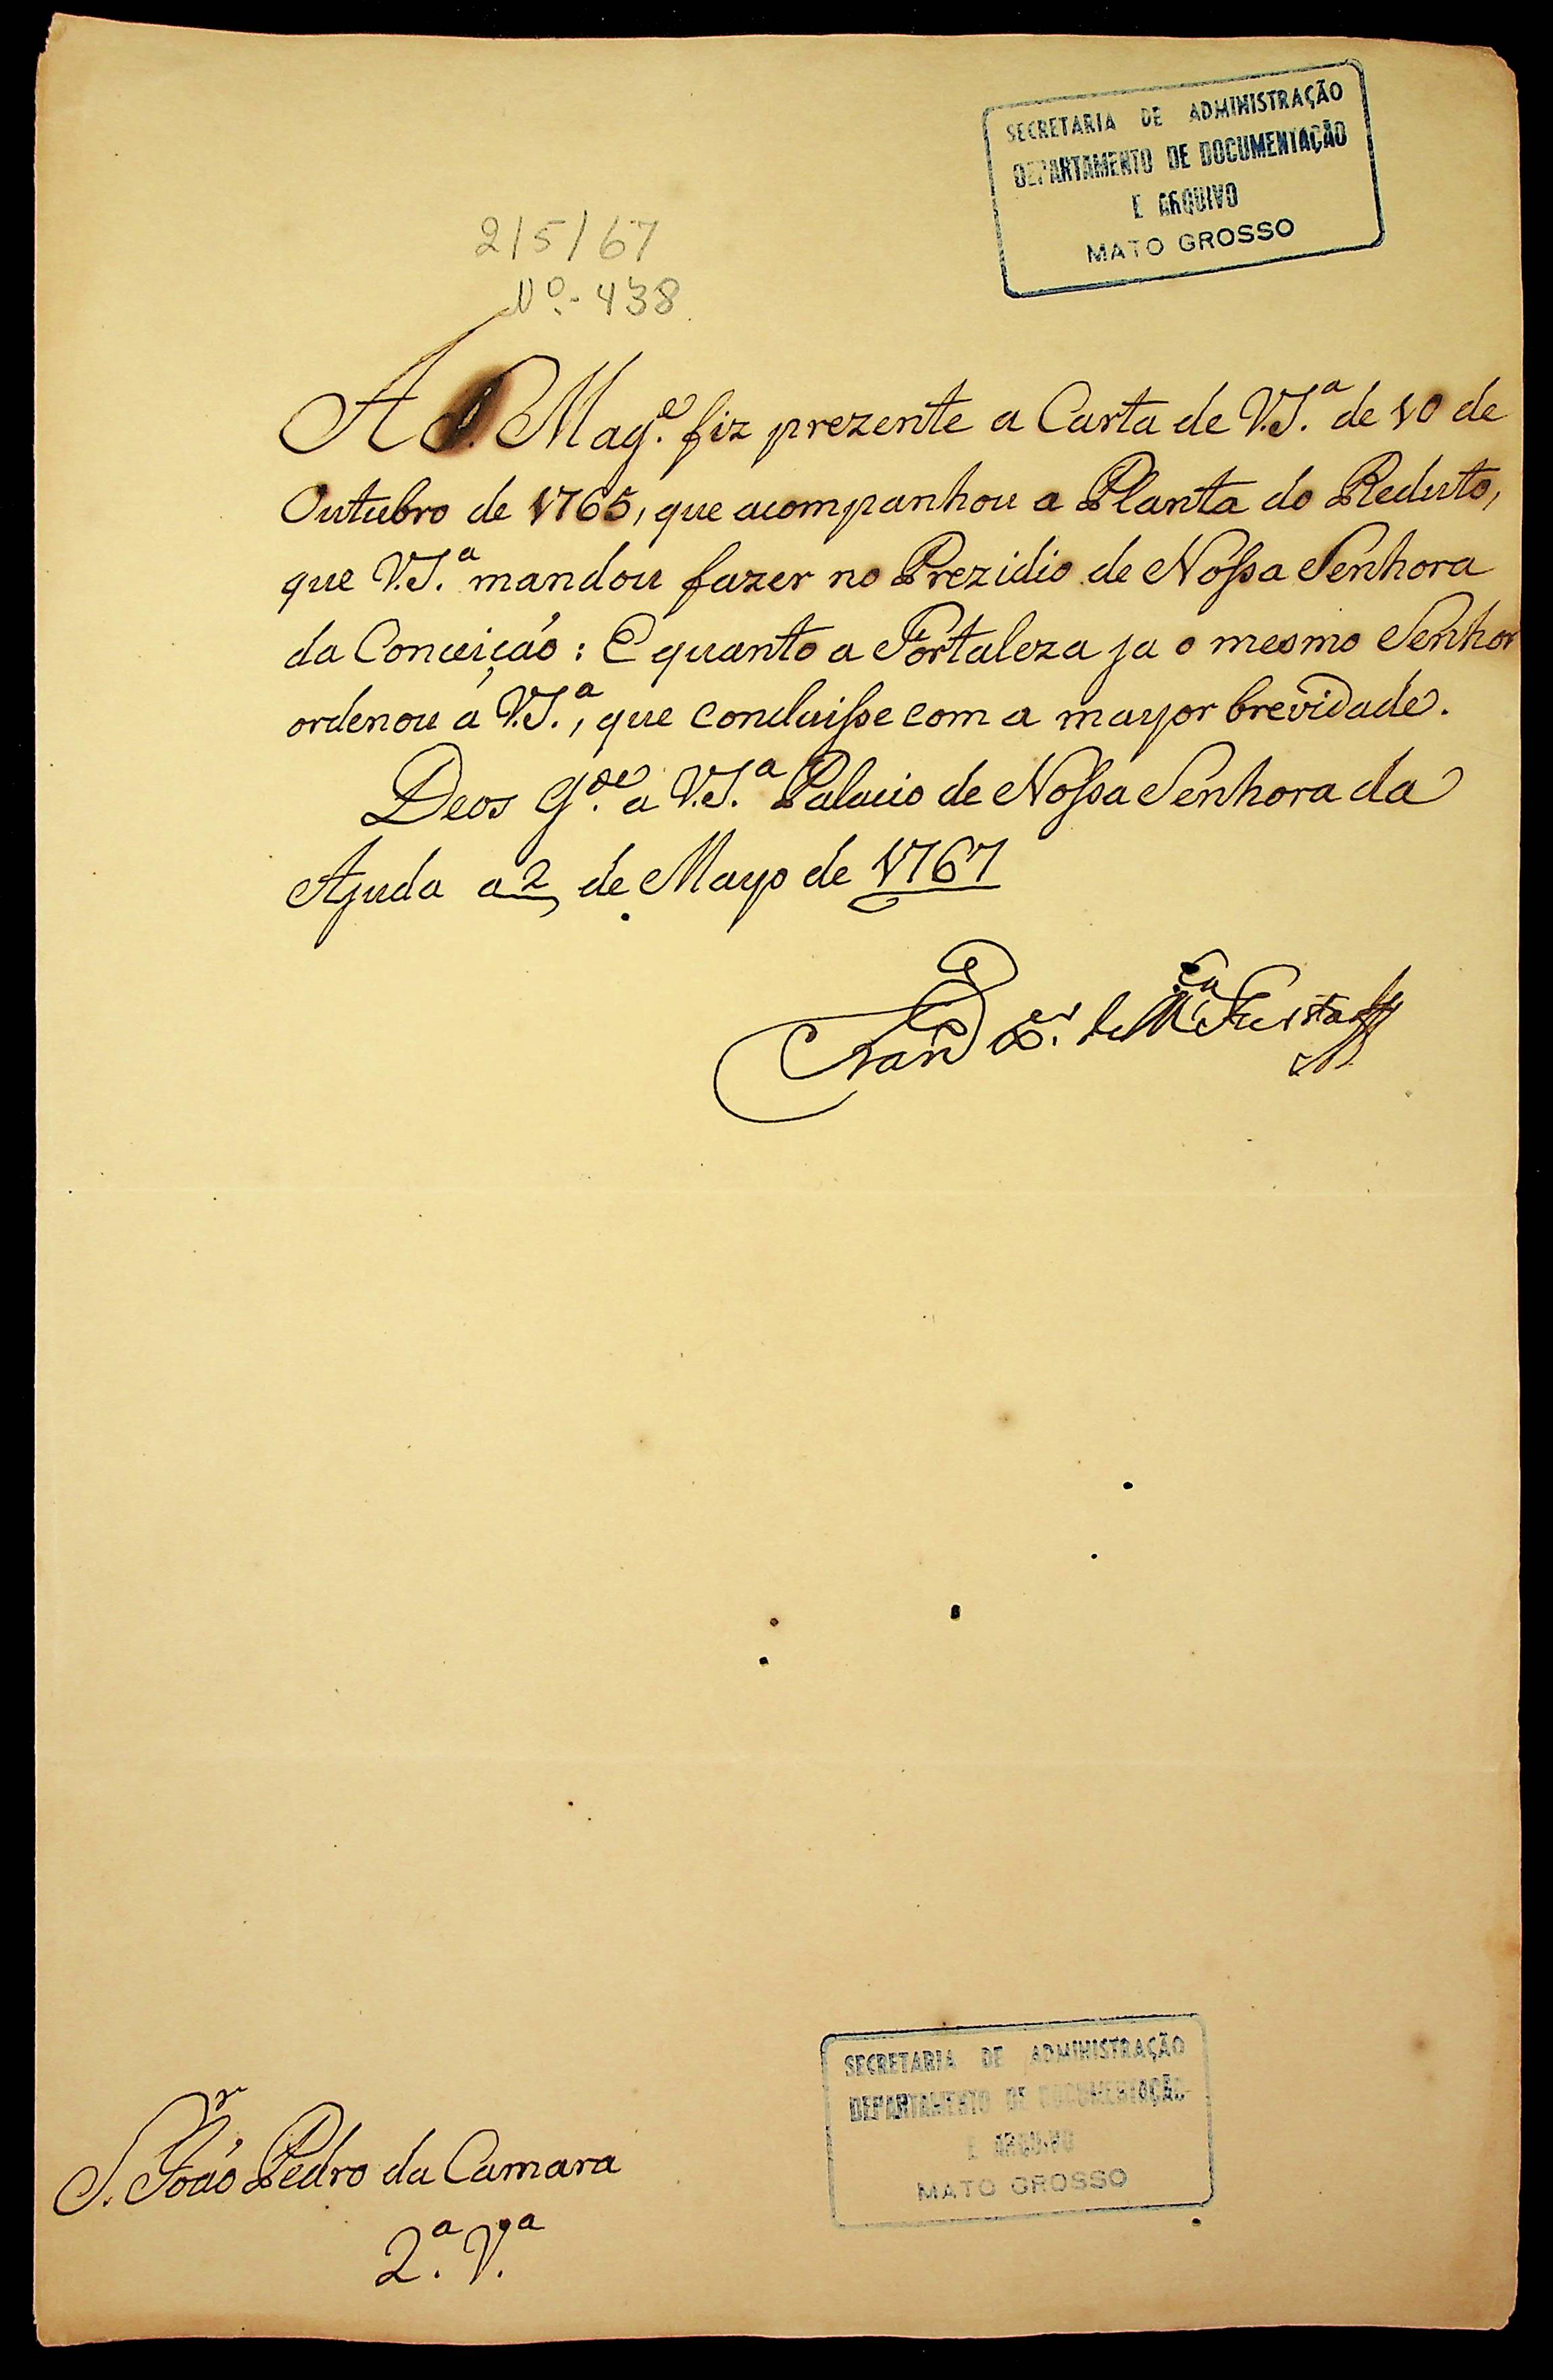 SECRETARIA DE ADMINISTRAÇÃO
DEPARTAMENTO DE DOCUMENTAÇÃO
E ARQUIVO
MATO GROSSO
2/5/67
Nº.- 438
A S. Mag.e fiz prezente a Carta de V.S.a de 10 de
Outubro de 1765, que acompanhou a Planta do Reduto,
que V.S.a mandou fazer no Prezidio de Nossa Senhora
da Conceição: E quanto a Fortaleza ja o mesmo Senhor
ordenou a V.S.a, que concluisse com a mayor brevidade.
Deos g.de a V.S.a Palacio de Nossa Senhora da
Ajuda a 2 de Mayo de 1767
Fran X.er de M.ça Furtado
S.r João Pedro da Camara
2.a V.a
SECRETARIA DE ADMINISTRAÇÃO
DEPARTAMENTO DE DOCUMENTAÇÃO
E ARQUIVO
MATO GROSSO